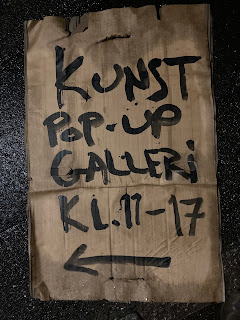 KUNST
POP-UP
GALLERi
KL.11-17